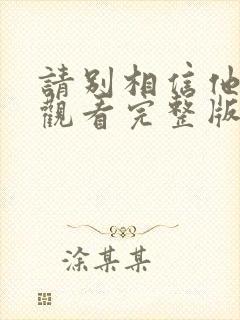 請別相信他
觀看完整版
涂某某